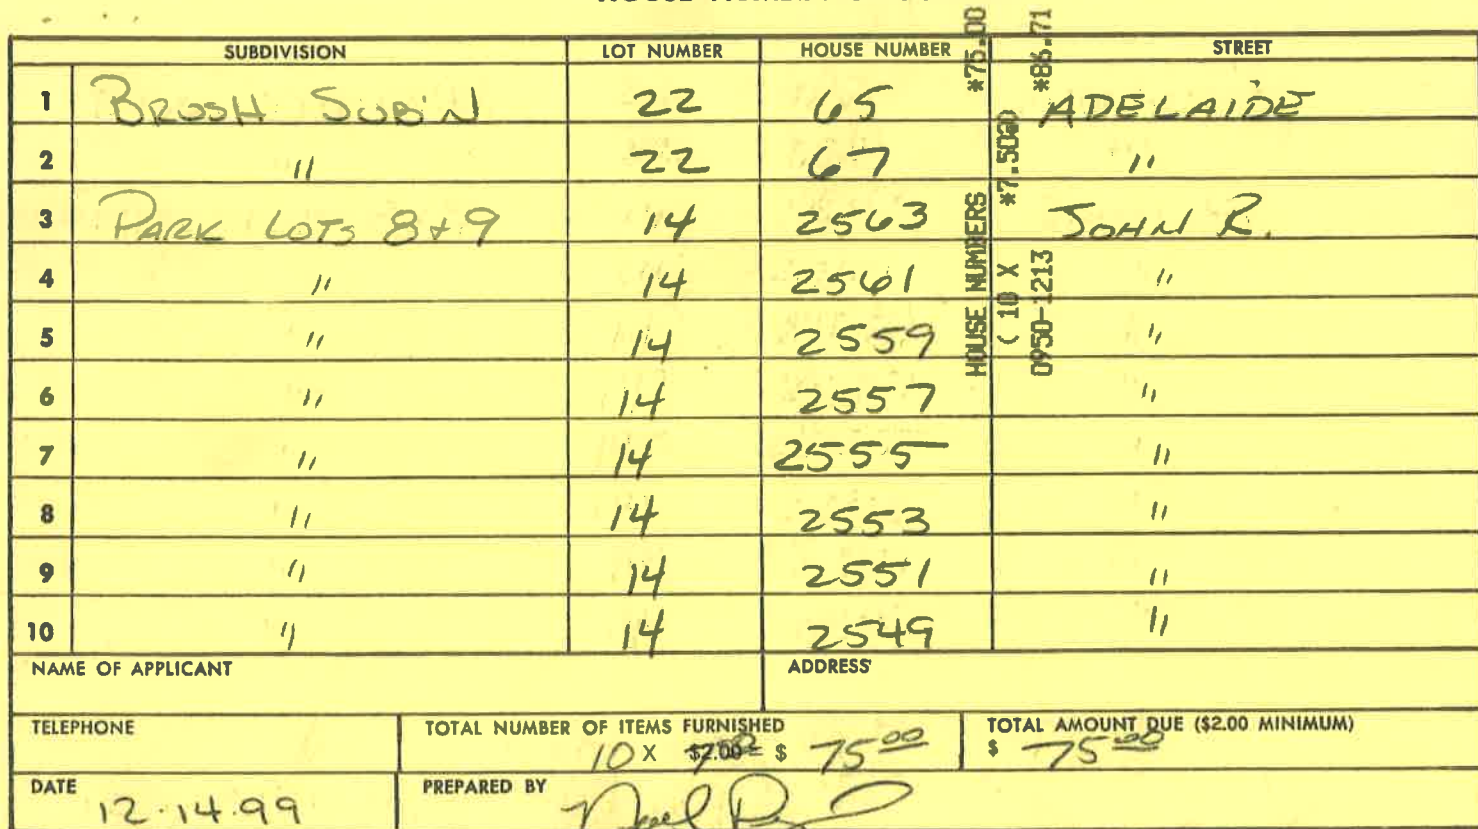 SUBDIVISION LOT NUMBER HOUSE NUMBER STREET
1 BRUSH SUB'N 22 65 ADELAIDE
2 " 22 67 "
3 PARK LOTS 8+9 14 2563 JOHN R.
4 " 14 2561 "
5 " 14 2559 "
6 " 14 2557 "
7 " 14 2555 "
8 " 14 2553 "
9 " 14 2551 "
10 " 14 2549 "
HOUSE NUMBERS *75.00
( 10 X *7.50@)
0950-1213 *86.71
NAME OF APPLICANT ADDRESS
TELEPHONE TOTAL NUMBER OF ITEMS FURNISHED TOTAL AMOUNT DUE ($2.00 MINIMUM)
10 X $2.00 = $ 75 00 $ 75 00
DATE PREPARED BY
12.14.99